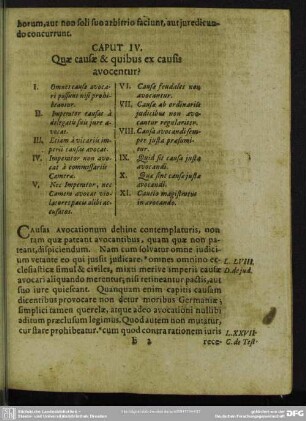 horum, aut non soli suo arbitrio faciunt, aut juredicun-
do concurrunt.
CAPUT IV.
Quæ causæ & quibus ex causis
avocentur?
I. Omnes causæ avoca-
ri possunt nisi prohi-
beantur.
II. Imperator causas à
delegatis suis jure a-
vocat.
III. Etiam à vicariis im-
perii causas avocat.
IV. Imperator non avo-
cat à commissariis
Cameræ.
V. Nec Imperator, nec
Camera avocat vio-
latores pacis alibi ac-
cusatos.
VI. Causæ feudales non
avocantur.
VII. Causæ ab ordinariis
judicibus non avo-
cantur regulariter.
VIII. Causa avocandi sem-
per justa præsumi-
tur.
IX. Quid sit causa justa
avocandi.
X. Quæ sint causæ justæ
avocandi.
XI. Cautio magistratus
in avocando.
Causas avocationum dehinc contemplaturis, non
tam quæ pateant avocantibus, quam quæ non pa-
teant, dispiciendum. Nam cum solvatur omne judici-
um vetante eo qui jussit judicare: omnes omnino ec-
clesiasticæ simul & civiles, mixti merive imperii causæ
avocari aliquando merentur; nisi retineantur pactis, aut
suo jure quiescant. Quanquam enim capitis causam
dicentibus provocare non detur moribus Germaniæ;
simplici tamen querelæ, atque adeo avocationi nullibi
aditum præclusum legimus. Quod autem non mutatur,
cur stare prohibeatur. cum quod contra rationem iuris
L. LVIII.
D. de jud.
L. XXVII.
C. de Test.
B 2
rece-